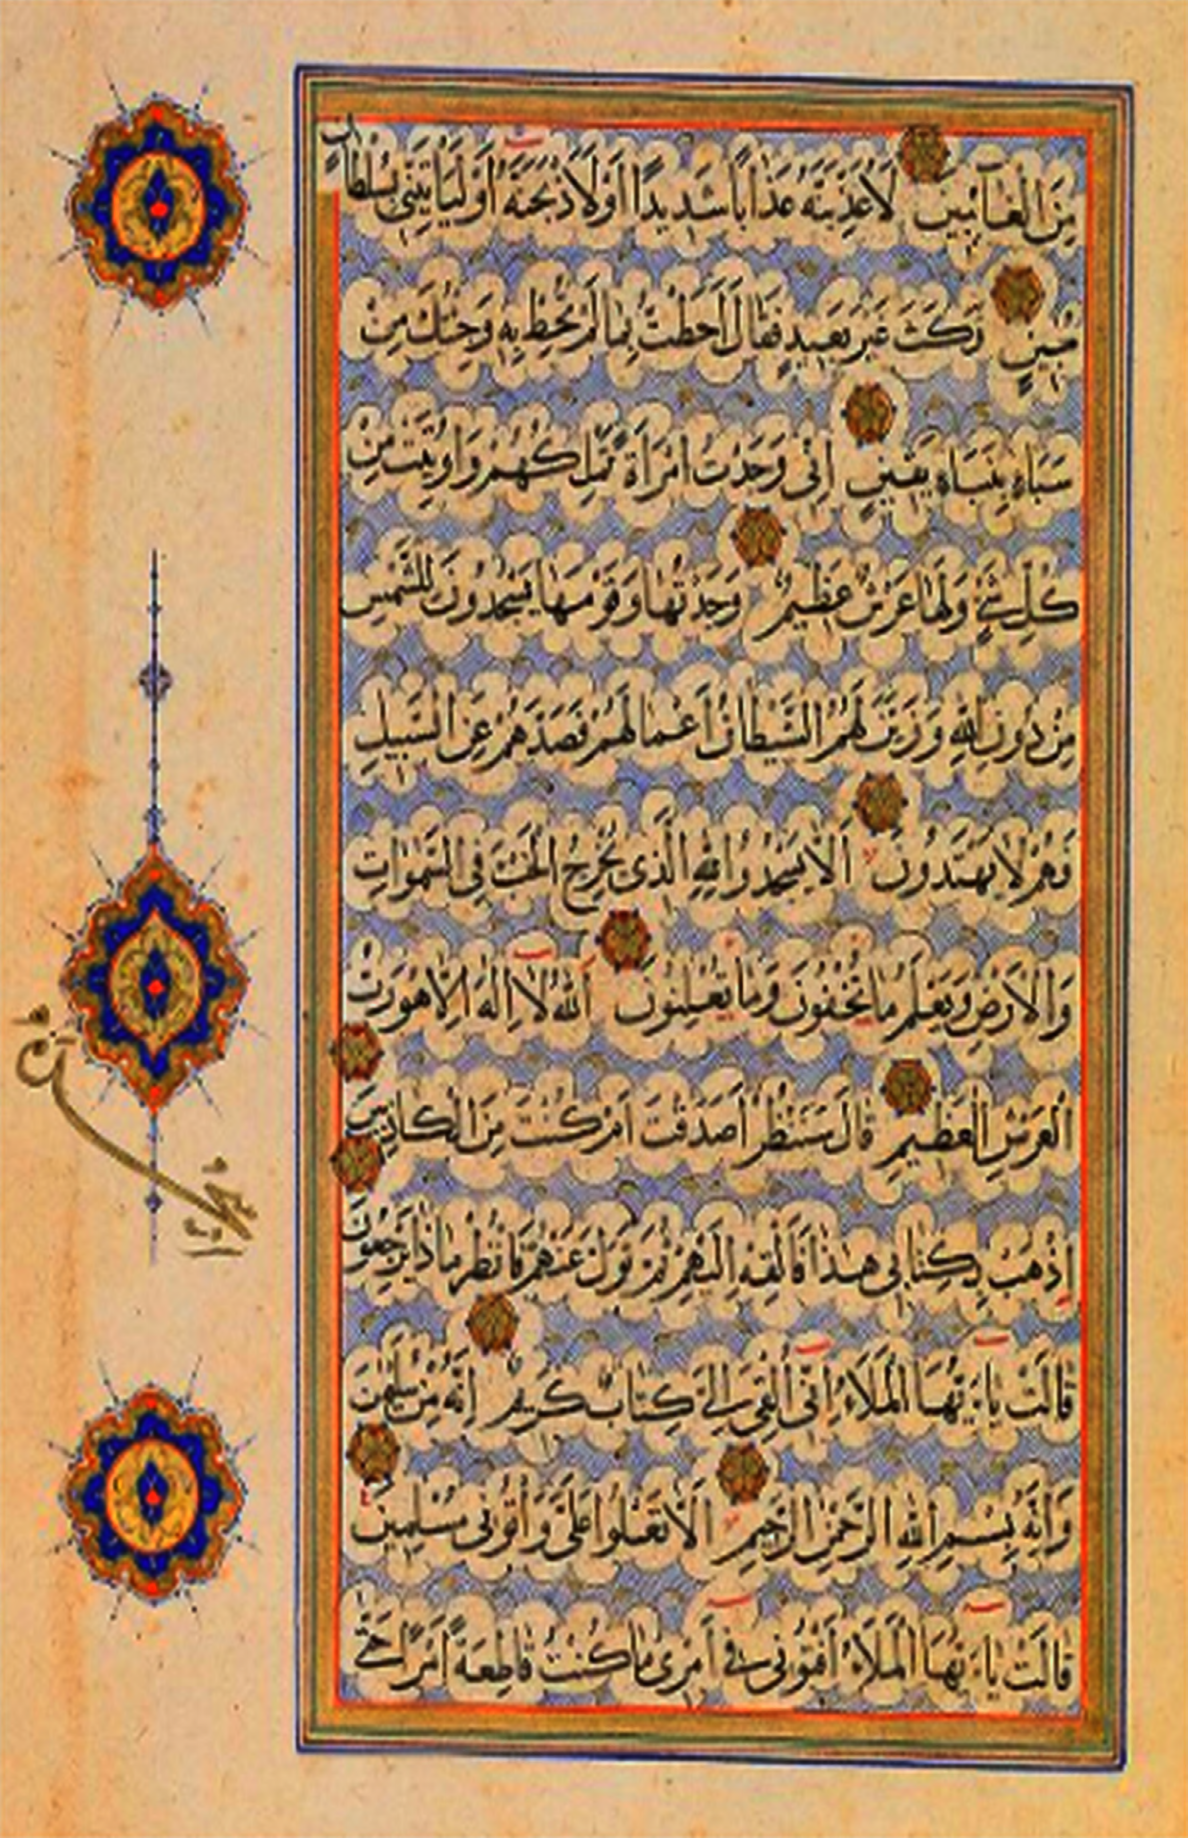 مِنَ الْغَآئِبِينَ لَأُعَذِّبَنَّهُ عَذَابًا شَدِيدًا أَوْ لَأَذْبَحَنَّهُ أَوْ لَيَأْتِيَنِّي بِسُلْطَانٍ
مُبِينٍ فَمَكَثَ غَيْرَ بَعِيدٍ فَقَالَ أَحَطْتُ بِمَا لَمْ تُحِطْ بِهِ وَجِئْتُكَ مِنْ
سَبَاءٍ بِنَبَاءٍ يَقِينٍ اِنِّى وَجَدْتُ امْرَاَةً تَمْلِكُهُمْ وَاُوتِيَتْ مِنْ
كُلِّ شَىْءٍ وَلَهَا عَرْشٌ عَظِيمٌ وَجَدْتُهَا وَقَوْمَهَا يَسْجُدُونَ لِلشَّمْسِ
مِنْ دُونِ اللّٰهِ وَزَيَّنَ لَهُمُ الشَّيْطَانُ اَعْمَالَهُمْ فَصَدَّهُمْ عَنِ السَّبِيلِ
فَهُمْ لَا يَهْتَدُونَ اَلَّا يَسْجُدُوا لِلّٰهِ الَّذِى يُخْرِجُ الْخَبْءَ فِى السَّمٰوَاتِ
وَالْاَرْضِ وَيَعْلَمُ مَا تُخْفُونَ وَمَا تُعْلِنُونَ اَللّٰهُ لَا اِلٰهَ اِلَّا هُوَ رَبُّ
الْعَرْشِ الْعَظِيمِ قَالَ سَنَنْظُرُ اَصَدَقْتَ اَمْ كُنْتَ مِنَ الْكَاذِبِينَ
اِذْهَبْ بِكِتَابِى هٰذَا فَاَلْقِهْ اِلَيْهِمْ ثُمَّ تَوَلَّ عَنْهُمْ فَانْظُرْ مَاذَا يَرْجِعُونَ
قَالَتْ يَاءَيُّهَا الْمَلَاءُ اِنِّى اُلْقِىَ اِلَىَّ كِتَابٌ كَرِيمٌ اِنَّهُ مِنْ سُلَيْمٰنَ
وَاِنَّهُ بِسْمِ اللّٰهِ الرَّحْمٰنِ الرَّحِيمِ اَلَّا تَعْلُوا عَلَىَّ وَأْتُونِى مُسْلِمِينَ
قَالَتْ يَاءَيُّهَا الْمَلَاءُ اَفْتُونِى فِى اَمْرِى مَا كُنْتُ قَاطِعَةً اَمْرًا حَتّٰى